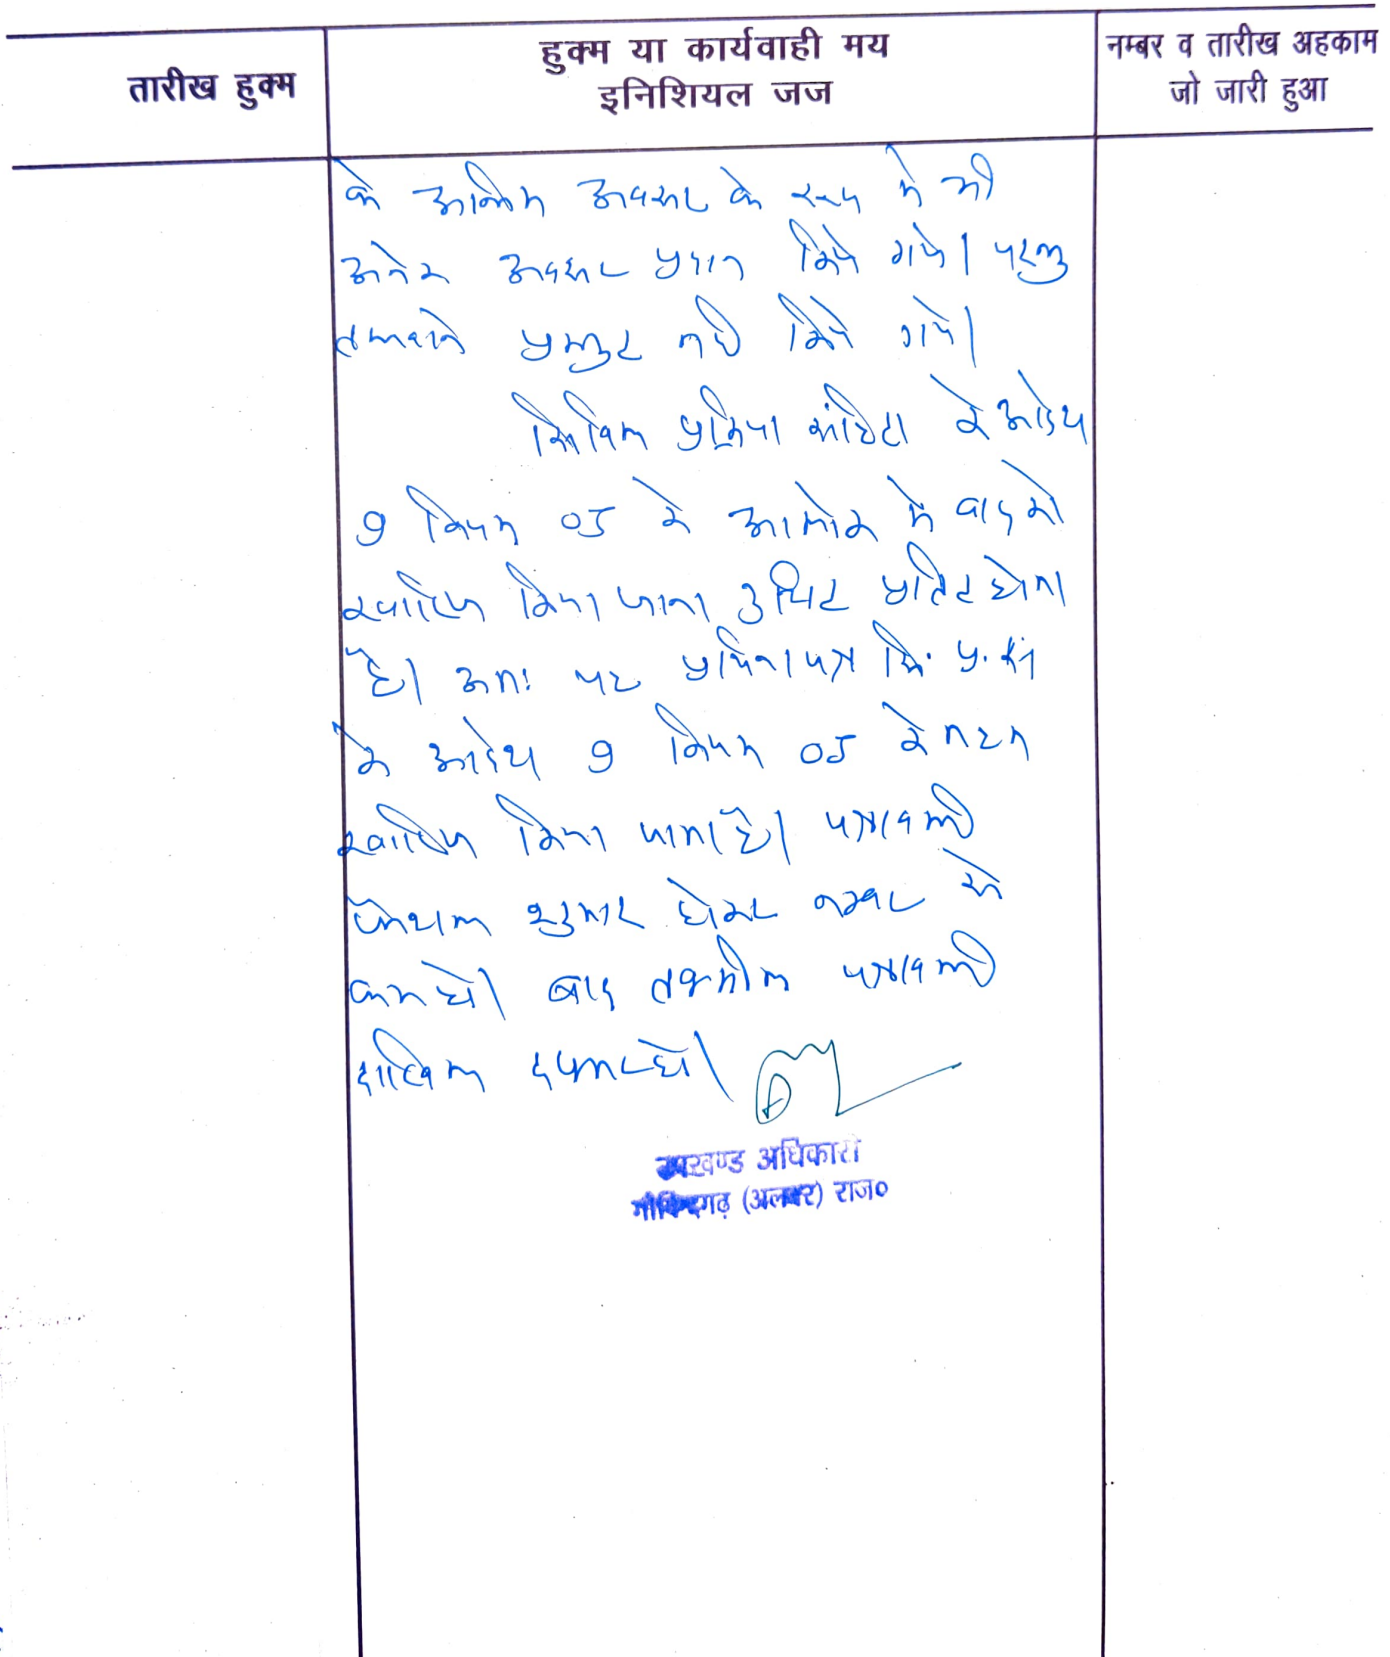 तारीख हुक्म
हुक्म या कार्यवाही मय
इनिशियल जज
नम्बर व तारीख अहकाम
जो जारी हुआ
के अन्तिम अवसर के रूप में भी
अनेक अवसर प्रदान किये गये। परन्तु
तलवाने प्रस्तुत नही किये गये।
सिविल प्रक्रिया संहिता के आदेश
9 नियम 05 के आलोक में वाद को
खारिज किया जाना उचित प्रतित होता
है। अतः यह प्रार्थना पत्र सि. प्र. सं
के आदेश 9 नियम 05 के तहत
खारिज किया जाता है। पत्रावली
फैशल शुमार होकर नम्बर से
कम हो। बाद तकमील पत्रावली
दाखिल दफ्तर हो।
उपखण्ड अधिकारी
गोविन्दगढ़ (अलवर) राज०